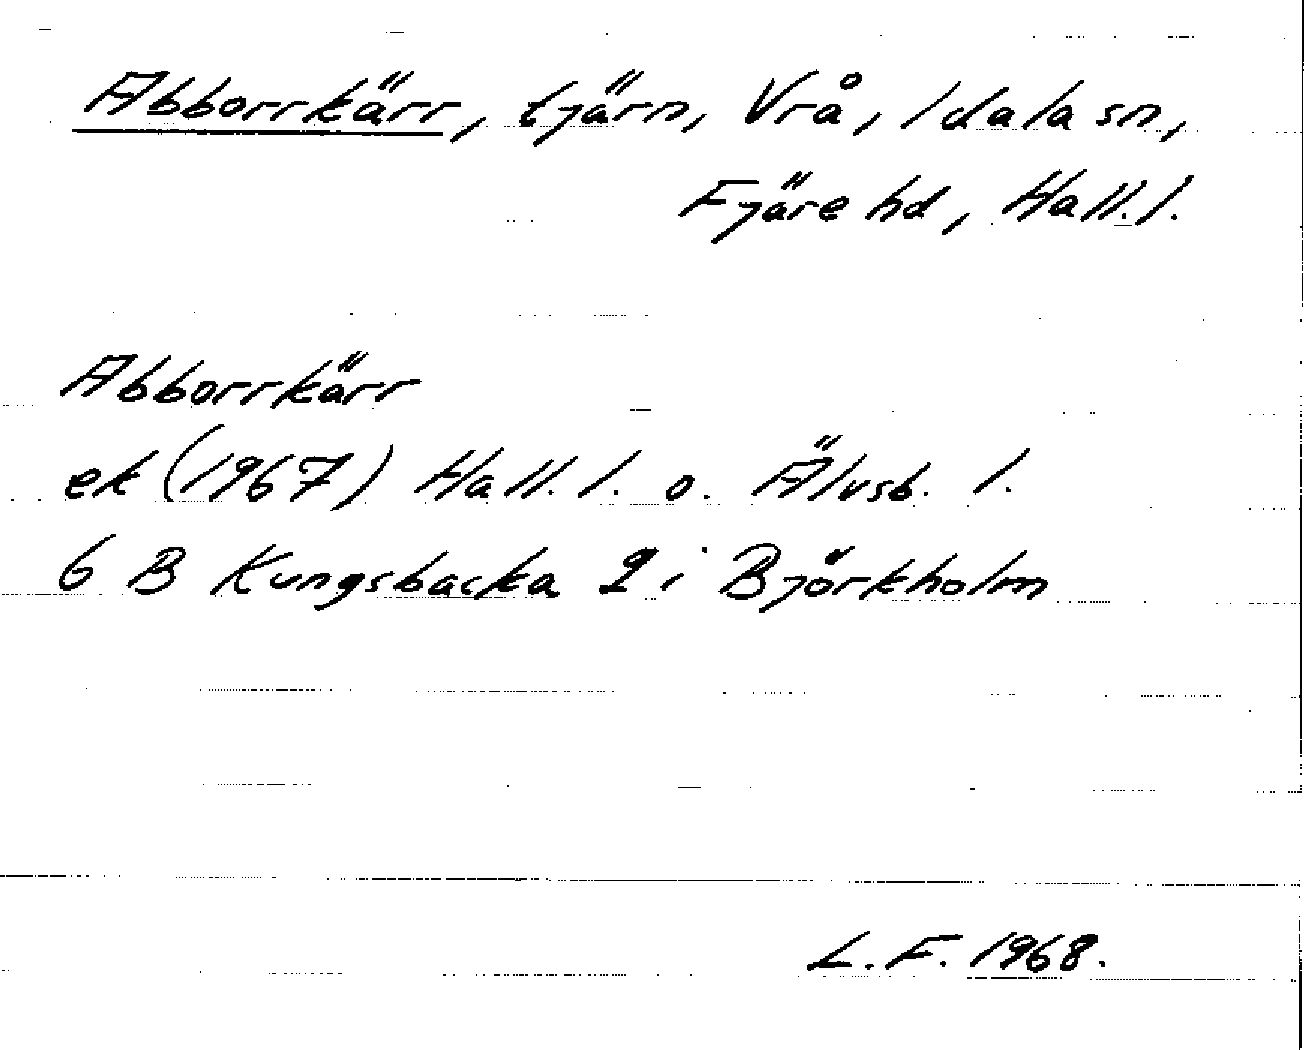 Abborrkärr, tjärn, Vrå, Idala sn,
Fjäre hd, Hall. l.
Abborrkärr
ek (1967) Hall. l. o. Älvsb. l.
6 B Kungsbacka 2 i Björkholm
L. F. 1968.